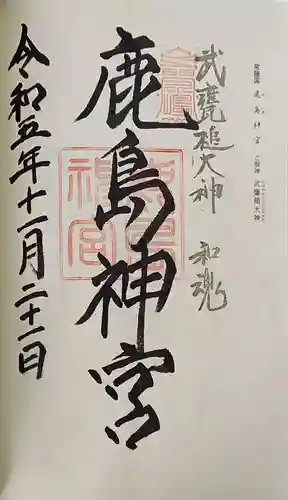 常陸国 鹿島神宮 御祭神 武甕槌大神
武甕槌大神 和魂
鹿島神宮
令和五年十一月二十一日